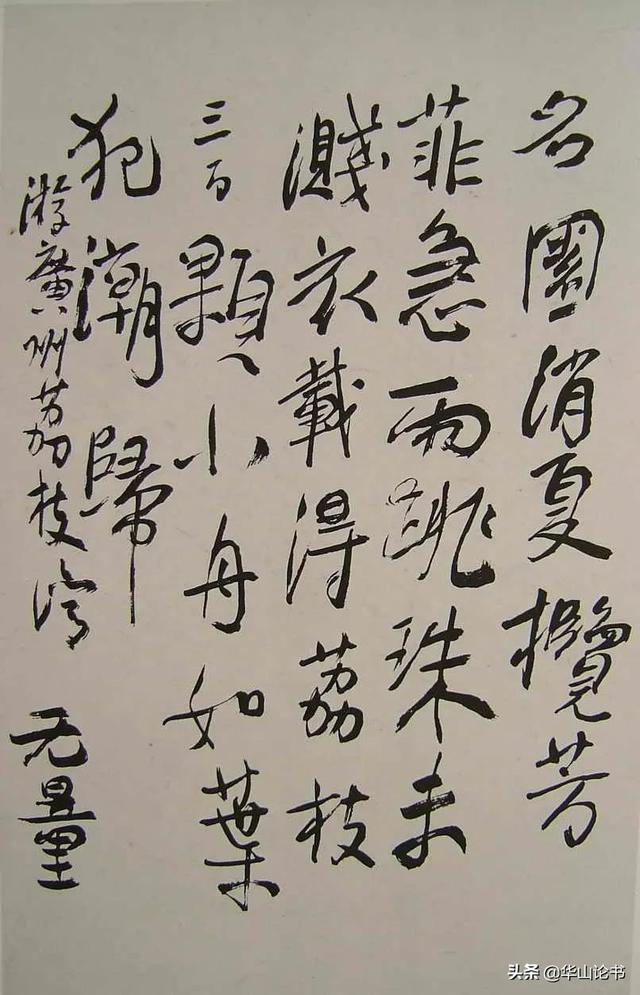 名園消夏攬芳
菲急雨跳珠未
濺衣載得荔枝
三百顆小舟如葉
犯潮歸
游廣州荔枝灣 无量
头条 @华山论书